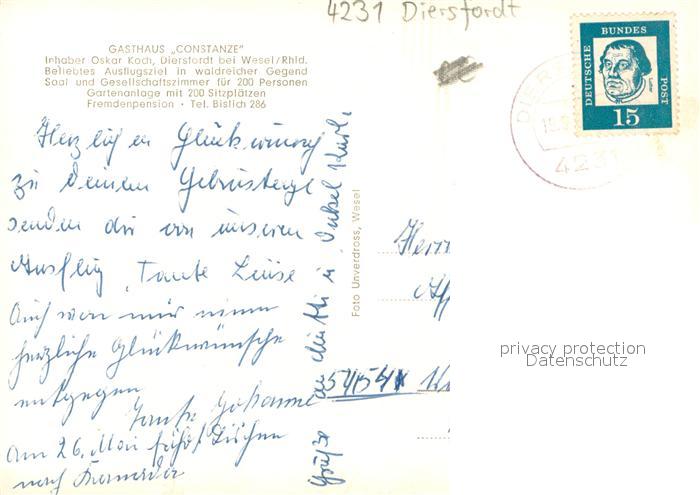 4231 Diersfordt
GASTHAUS „CONSTANZE"
Inhaber Oskar Koch, Diersfordt bei Wesel/Rhld.
Beliebtes Ausflugsziel in waldreicher Gegend
Saal und Gesellschaftszimmer für 200 Personen
Gartenanlage mit 200 Sitzplätzen
Fremdenpension · Tel. Bislich 286
DEUTSCHE BUNDES POST
15
DIERS
4231
Herzlichen Glückwunsch
zu deinem Geburtstage
senden dir von unserem
Ausflug, Tante Luise
Auch von mir nimm
herzliche Glückwünsche
entgegen
Tante Johanne
Am 26. Mai fährt
nach
Grüße an Mutti u. Onkel Karl.
Foto Unverdross, Wesel
Herrn
5415
privacy protection
Datenschutz